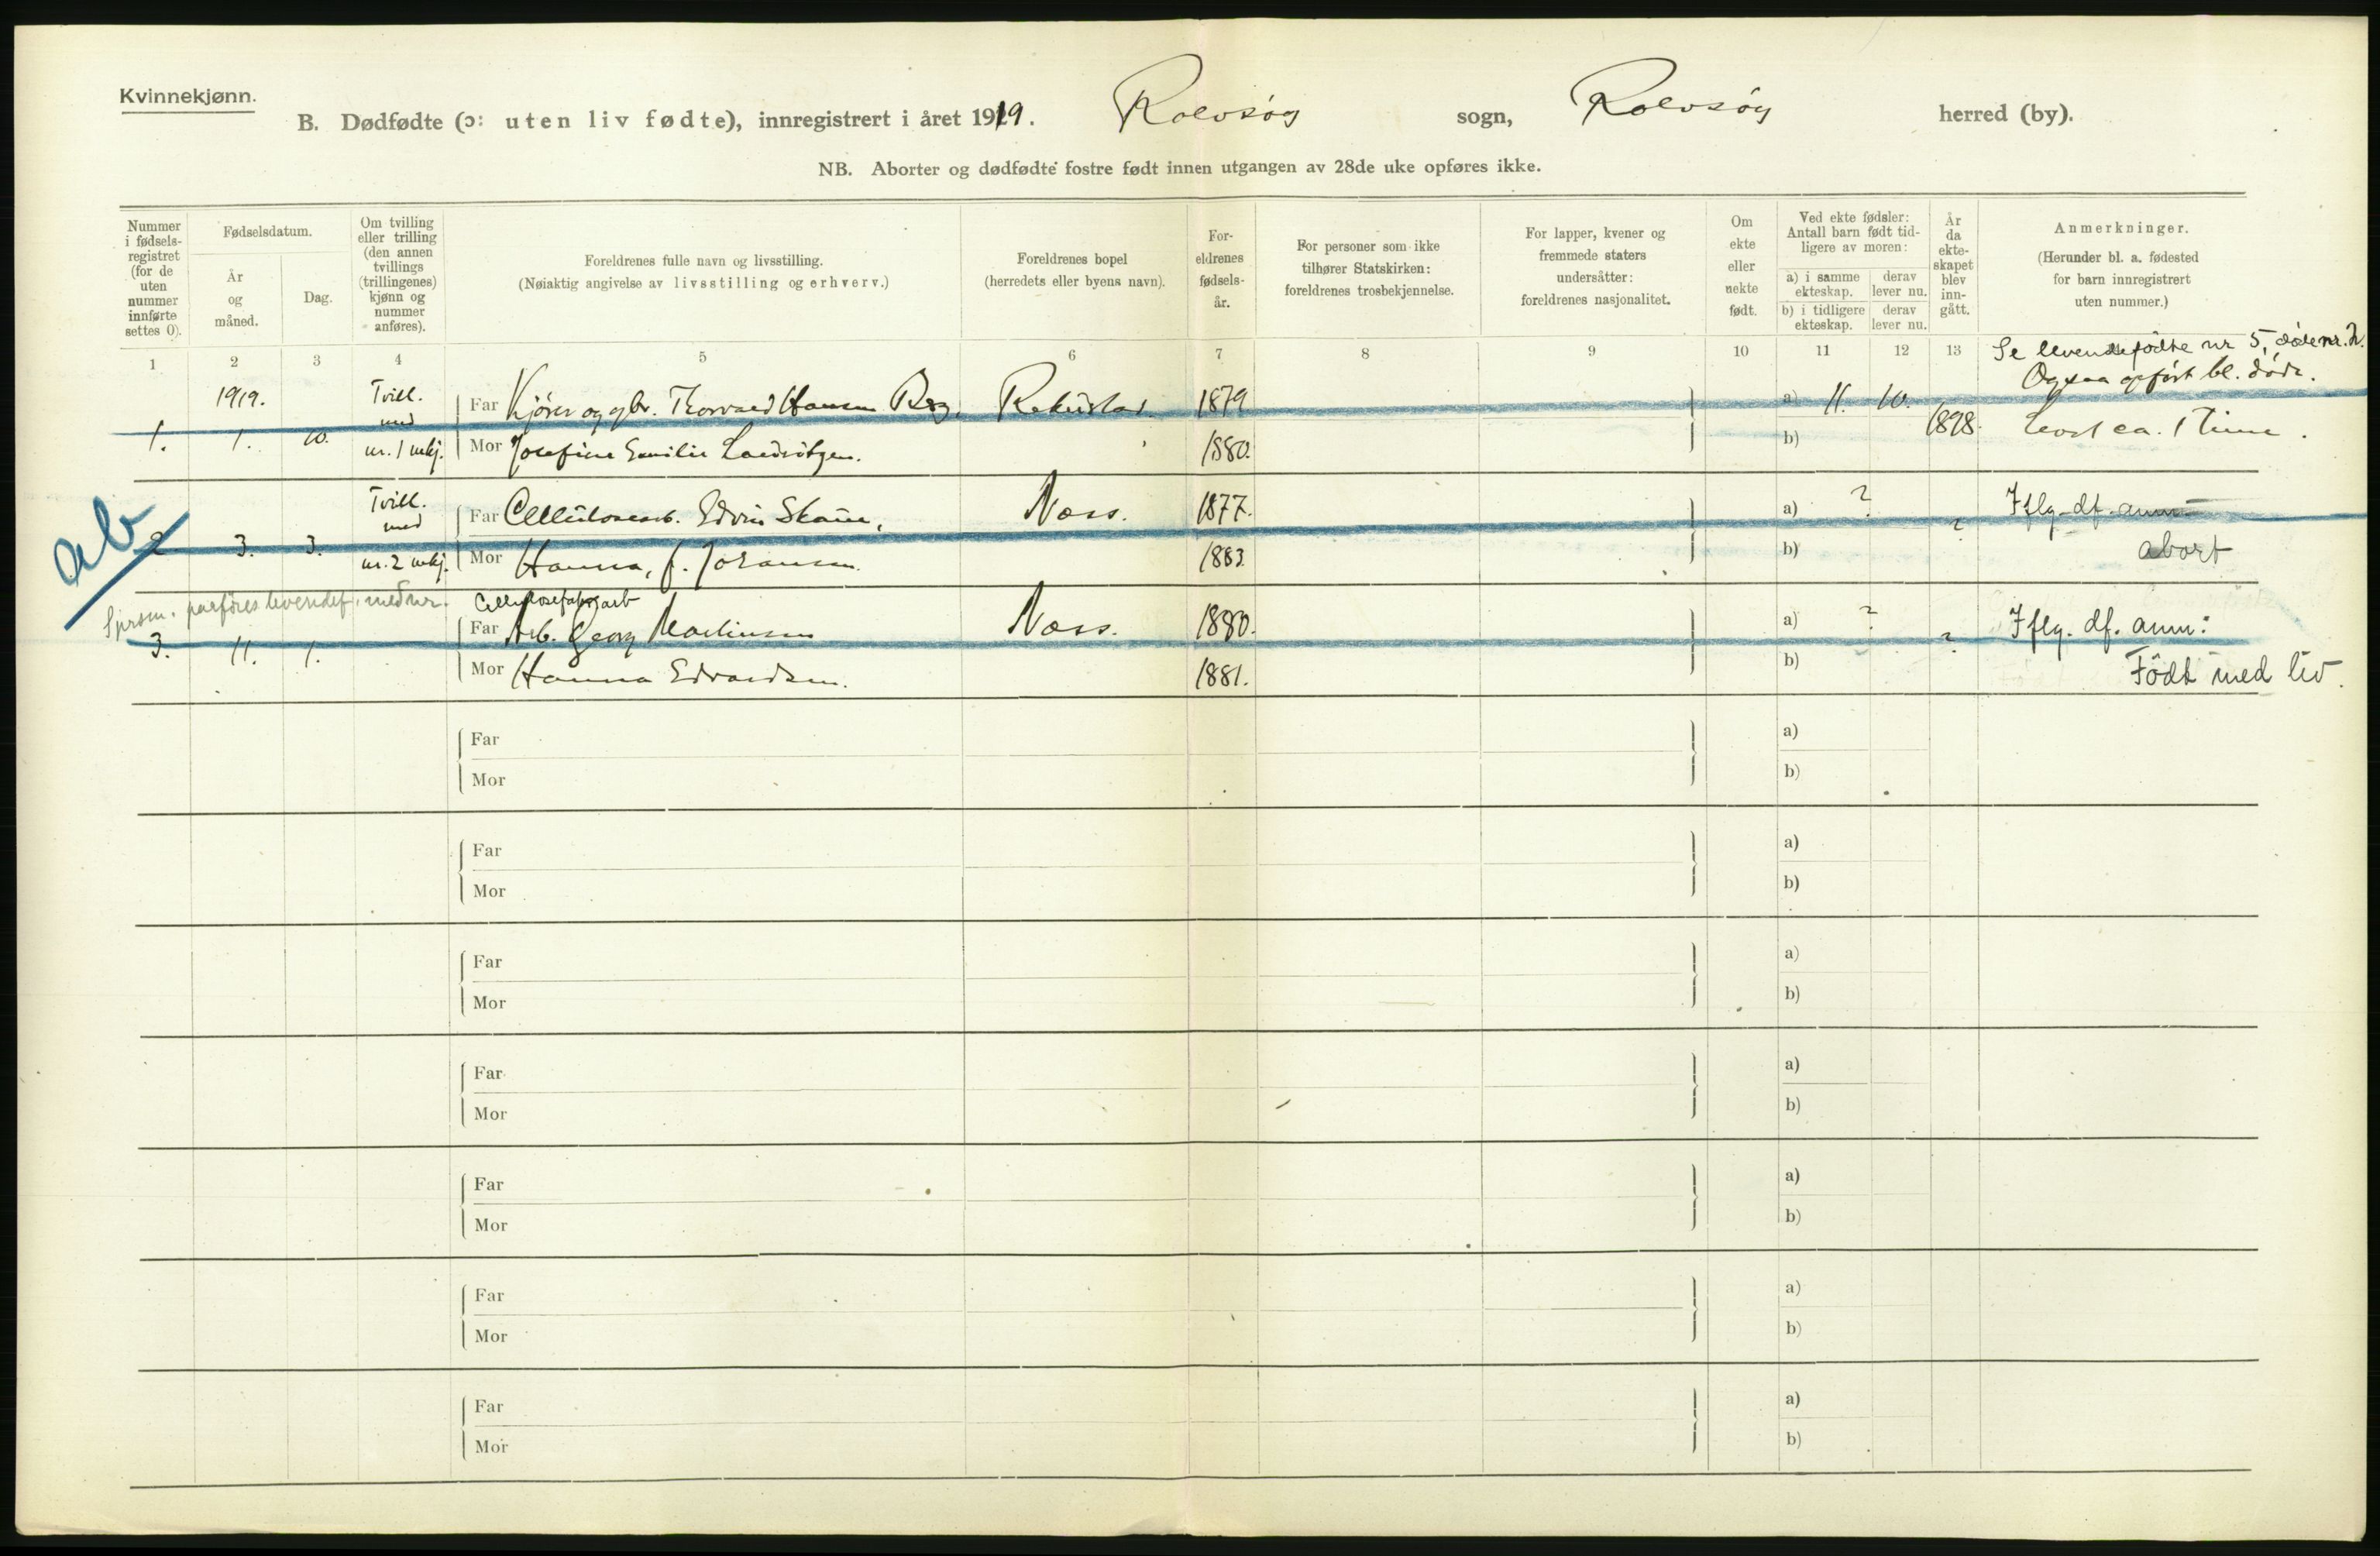 Kvinnekjønn.
B. Dødfødte (ɔ: uten liv fødte), innregistrert i året 1919. Rolvsøy sogn, Rolvsøy herred (by).
NB. Aborter og dødfødte fostre født innen utgangen av 28de uke opføres ikke.
Nummer i fødsels-
registret
(for de
uten
nummer
innførte
settes 0).
Fødselsdatum.
År
og
måned.
Dag.
Om tvilling
eller trilling
(den annen
tvillings
(trillingenes)
kjønn og
nummer
anføres).
Foreldrenes fulle navn og livsstilling.
(Nøiaktig angivelse av livsstilling og erhverv.)
Foreldrenes bopel
(herredets eller byens navn).
For-
eldrenes
fødsels-
år.
For personer som ikke
tilhører Statskirken:
foreldrenes trosbekjennelse.
For lapper, kvener og
fremmede staters
undersåtter:
foreldrenes nasjonalitet.
Om
ekte
eller
uekte
født.
Ved ekte fødsler:
Antall barn født tid-
ligere av moren:
a) i samme
ekteskap.
derav
lever nu.
b) i tidligere
ekteskap.
derav
lever nu.
År
da
ekte-
skapet
blev
inn-
gått.
Anmerkninger.
(Herunder bl. a. fødested
for barn innregistrert
uten nummer.)
1 2 3 4 5 6 7 8 9 10 11 12 13
Se levendefødte nr 5, døde nr. 2.
Ogsaa opført bl. døde.
1919. Tvill.
med
Far Kjører og gbr. Thorvald Hansen Berg. 1879 a) 11. 10.
1. 1. 10. nr. 1 mkj. Mor Josefine Emilie 1880. b) 1898. Levet ca. 1 Time.
ab
Tvill.
med
Far Cellulosearb. Edvin Skaue, Næss. 1877. a) ? Iflg. df. anm
2 3. 3. nr. 2 mkj. Mor Hanna, f. Johansen. 1883. b) ? abort
Sprsm. paaføres levendef. med nr.
Cellulosefabrarb
Far Arb. Georg Martinsen Næss. 1880. a) ? Iflg. df. anm:
3. 11. 1. Mor Hanna Edvardsen. 1881. b) ? Født med liv.
Far a)
Mor b)
Far a)
Mor b)
Far a)
Mor b)
Far a)
Mor b)
Far a)
Mor b)
Far a)
Mor b)
Far a)
Mor b)